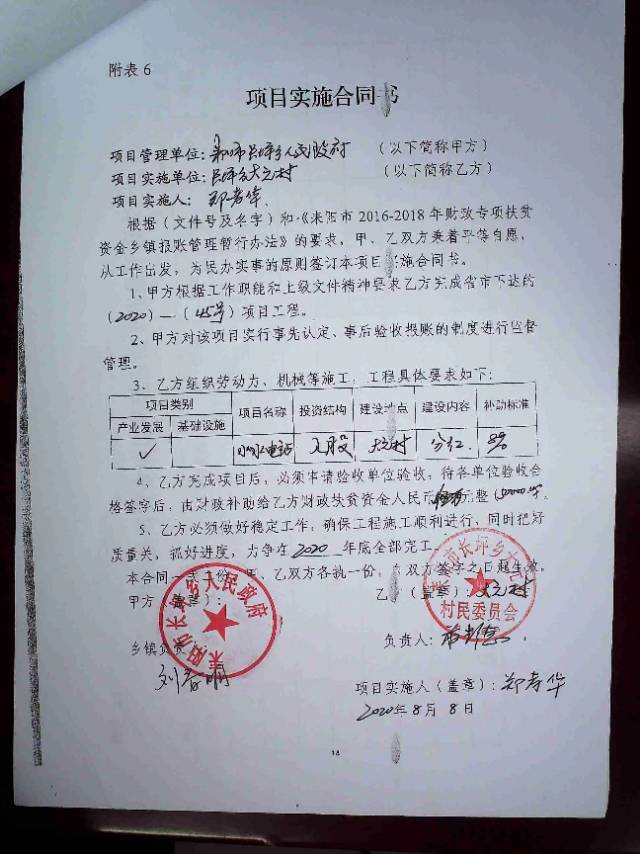 附表6
项目实施合同书
项目管理单位：耒阳市长坪乡人民政府 （以下简称甲方）
项目实施单位：长坪乡大元村 （以下简称乙方）
项目实施人：郑孝华
根据（文件号及名字）和《耒阳市2016-2018年财政专项扶贫
资金乡镇报账管理暂行办法》的要求，甲、乙双方秉着平等自愿，
从工作出发，为民办实事的原则签订本项目实施合同书。
1、甲方根据工作职能和上级文件精神要求乙方完成省市下达的
（2020）—（45号）项目工程。
2、甲方对该项目实行事先认定、事后验收报账的制度进行监督
管理。
3、乙方组织劳动力、机械等施工，工程具体要求如下：
项目类别 项目名称 投资结构 建设地点 建设内容 补助标准
产业发展 基础设施
✓ 小水电站 入股 大元村 分红 8%
4、乙方完成项目后，必须申请验收单位验收，待各单位验收合
格签字后，由财政补助给乙方财政扶贫资金人民币 元整
5、乙方必须做好稳定工作，确保工程施工顺利进行，同时把好
质量关，抓好进度，力争在2020年底全部完工。
本合同一式 份，甲、乙双方各执一份，有双方签字之日起生效。
甲方（盖章）： 乙 （盖章）：大元村
耒阳市长坪乡人民政府
耒阳市长坪乡大元 村民委员会
乡镇负责 负责人：
刘春明
项目实施人（盖章）：郑孝华
2020年8月8日
14